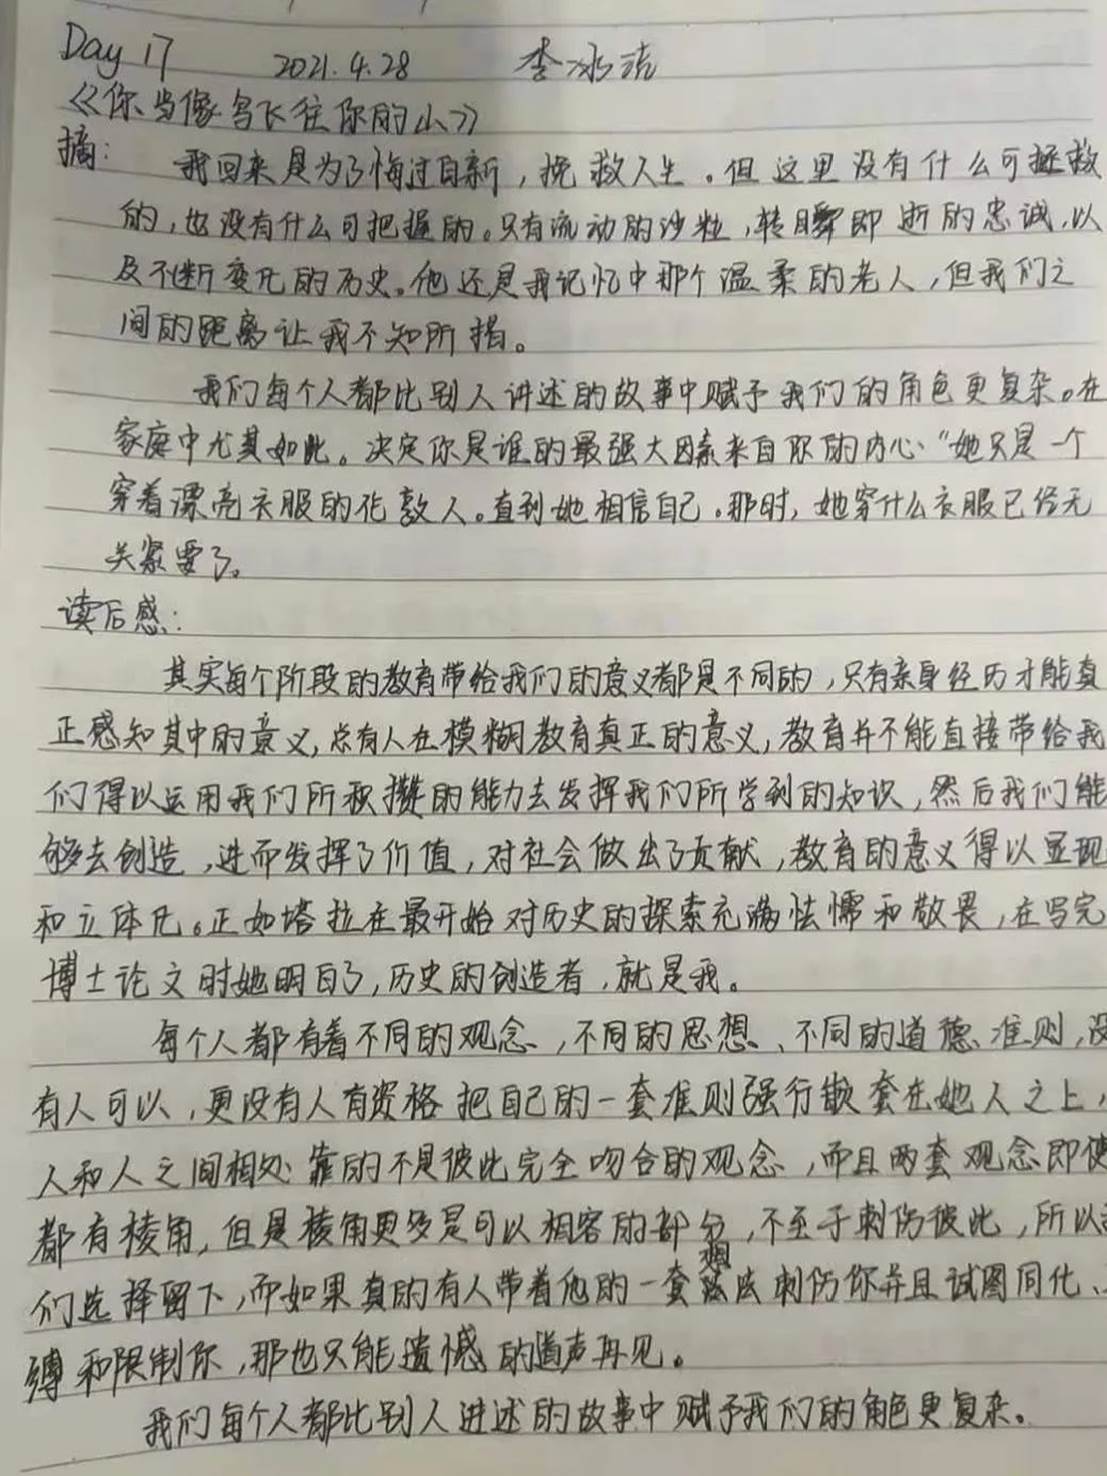 Day 17 2021.4.28 李冰洁
《你当像鸟飞往你的山》
摘: 我回来是为了悔过自新,挽救人生。但这里没有什么可拯救
的,也没有什么可把握的。只有流动的沙粒,转瞬即逝的忠诚,以
及不断变化的历史。他还是我记忆中那个温柔的老人,但我们之
间的距离让我不知所措。
我们每个人都比别人讲述的故事中赋予我们的角色更复杂。在
家庭中尤其如此。决定你是谁的最强大因素来自你的内心“她只是一个
穿着漂亮衣服的伦敦人。直到她相信自己。那时,她穿什么衣服已经无
关紧要了。
读后感:
其实每个阶段的教育带给我们的意义都是不同的,只有亲身经历才能真
正感知其中的意义,总有人在模糊教育真正的意义,教育并不能直接带给我
们得以运用我们所积攒的能力去发挥我们所学到的知识,然后我们能
够去创造,进而发挥了价值,对社会做出了贡献,教育的意义得以显现
和立体化。正如塔拉在最开始对历史的探索充满怯懦和敬畏,在写完
博士论文时她明白了,历史的创造者,就是我。
每个人都有着不同的观念,不同的思想、不同的道德准则,没
有人可以,更没有人有资格把自己的一套准则强行嵌套在她人之上,
人和人之间相处靠的不是彼此完全吻合的观念,而且两套观念即使
都有棱角,但是棱角更多是可以相容的部分,不至于刺伤彼此,所以
们选择留下,而如果真的有人带着他的一套想法刺伤你并且试图同化、
缚和限制你,那也只能遗憾的道声再见。
我们每个人都比别人讲述的故事中赋予我们的角色更复杂。